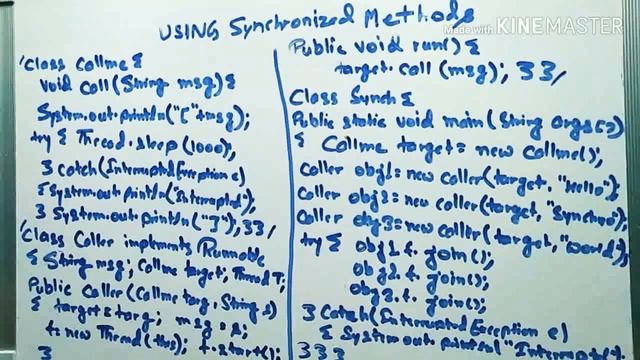 USING Synchronized Methods
Made with KINEMASTER
class Callme {
void call (String msg) {
System.out.println("[" +msg);
try { Thread.sleep (1000);
} catch (Interrupted Exception e)
{ System.out.println("Interrupted");
} System.out.println("]"); }}
class Caller implements Runnable
{ String msg; Callme target; Thread T;
Public Caller (Callme targ, String s)
{ target = targ; msg = s;
t = new Thread (this); t.start();
}
Public void run() {
target.call (msg); }}
Class Synch {
Public static void main (String args[])
{ Callme target = new Callme();
Caller obj1 = new caller (target, "Hello");
Caller obj2 = new caller (target, "Synchro");
Caller obj3 = new caller (target, "World");
try { obj1.t. join();
obj2.t. join();
obj3.t. join();
} catch (Interrupted Exception e)
{ System out println("Interrupted");
}}}